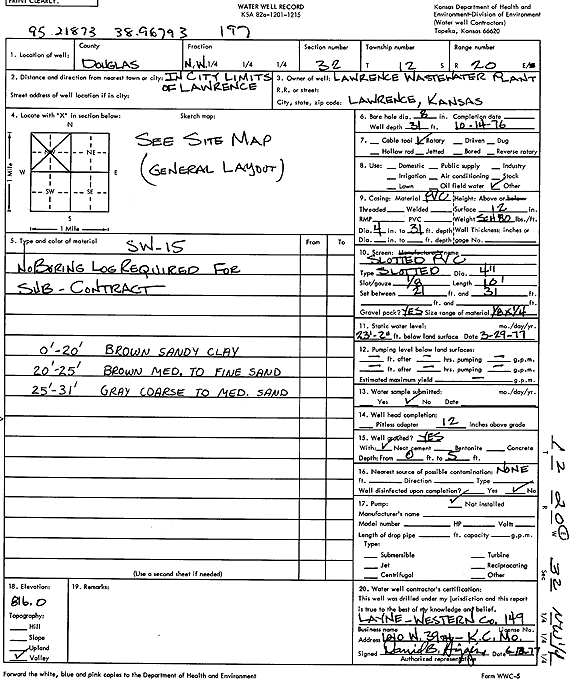 PRINT CLEARLY.
WATER WELL RECORD
KSA 82a-1201-1215
Kansas Department of Health and
Environment-Division of Environment
(Water well Contractors)
Topeka, Kansas 66620
95.21873 38.96793 197
1. Location of well:
County
DOUGLAS
Fraction
N.W. 1/4 1/4 1/4
Section number
32
Township number
T 12 S
Range number
R 20 E/W
2. Distance and direction from nearest town or city: IN CITY LIMITS
OF LAWRENCE
Street address of well location if in city:
3. Owner of well: LAWRENCE WASTEWATER PLANT
R.R. or street:
City, state, zip code: LAWRENCE, KANSAS
4. Locate with "X" in section below:
Sketch map:
N
NW NE
W E
SW SE
S
1 Mile
1 Mile
SEE SITE MAP
(GENERAL LAYOUT)
5. Type and color of material
From To
SW-15
NO BORING LOG REQUIRED FOR
SUB-CONTRACT
0'-20' BROWN SANDY CLAY
20'-25' BROWN MED. TO FINE SAND
25'-31' GRAY COARSE TO MED. SAND
(Use a second sheet if needed)
6. Bore hole dia. 8 in. Completion date
Well depth 31 ft. 10-14-76
7. Cable tool Rotary Driven Dug
Hollow rod Jetted Bored Reverse rotary
8. Use: Domestic Public supply Industry
Irrigation Air conditioning Stock
Lawn Oil field water Other
9. Casing: Material PVC Height: Above or below
Threaded Welded Surface 12 in.
RMP PVC Weight SCH 80 lbs./ft.
Dia. 4 in. to 31 ft. depth Wall Thickness: inches or
Dia. in. to ft. depth gage No.
10. Screen: Manufacturer's name
SLOTTED PVC
Type SLOTTED Dia. 4"
Slot/gauze 1/8 Length 10'
Set between 21 ft. and 31 ft.
ft. and ft.
Gravel pack? YES Size range of material 1/8 X 1/4
11. Static water level: mo./day/yr.
23'-2" ft. below land surface Date 3-29-77
12. Pumping level below land surfaces:
ft. after hrs. pumping g.p.m.
ft. after hrs. pumping g.p.m.
Estimated maximum yield g.p.m.
13. Water sample submitted: mo./day/yr.
Yes No Date
14. Well head completion:
Pitless adapter 12 Inches above grade
15. Well grouted? YES
With: Neat cement Bentonite Concrete
Depth: From 0 ft. to 5 ft.
16. Nearest source of possible contamination: NONE
ft. Direction Type
Well disinfected upon completion? Yes No
17. Pump: Not installed
Manufacturer's name
Model number HP Volts
Length of drop pipe ft. capacity g.p.m.
Type:
Submersible Turbine
Jet Reciprocating
Centrifugal Other
18. Elevation:
816.0
Topography:
Hill
Slope
Upland
Valley
19. Remarks:
20. Water well contractor's certification:
This well was drilled under my jurisdiction and this report
is true to the best of my knowledge and belief.
LAYNE-WESTERN CO. 149
Business name License No.
Address 1010 W. 39TH - K.C. MO.
Signed Date 6-13-77
Authorized representative
T R W Sec 1/4 1/4 1/4
12 20 E 32 NW 1/4
Forward the white, blue and pink copies to the Department of Health and Environment
Form WWC-5